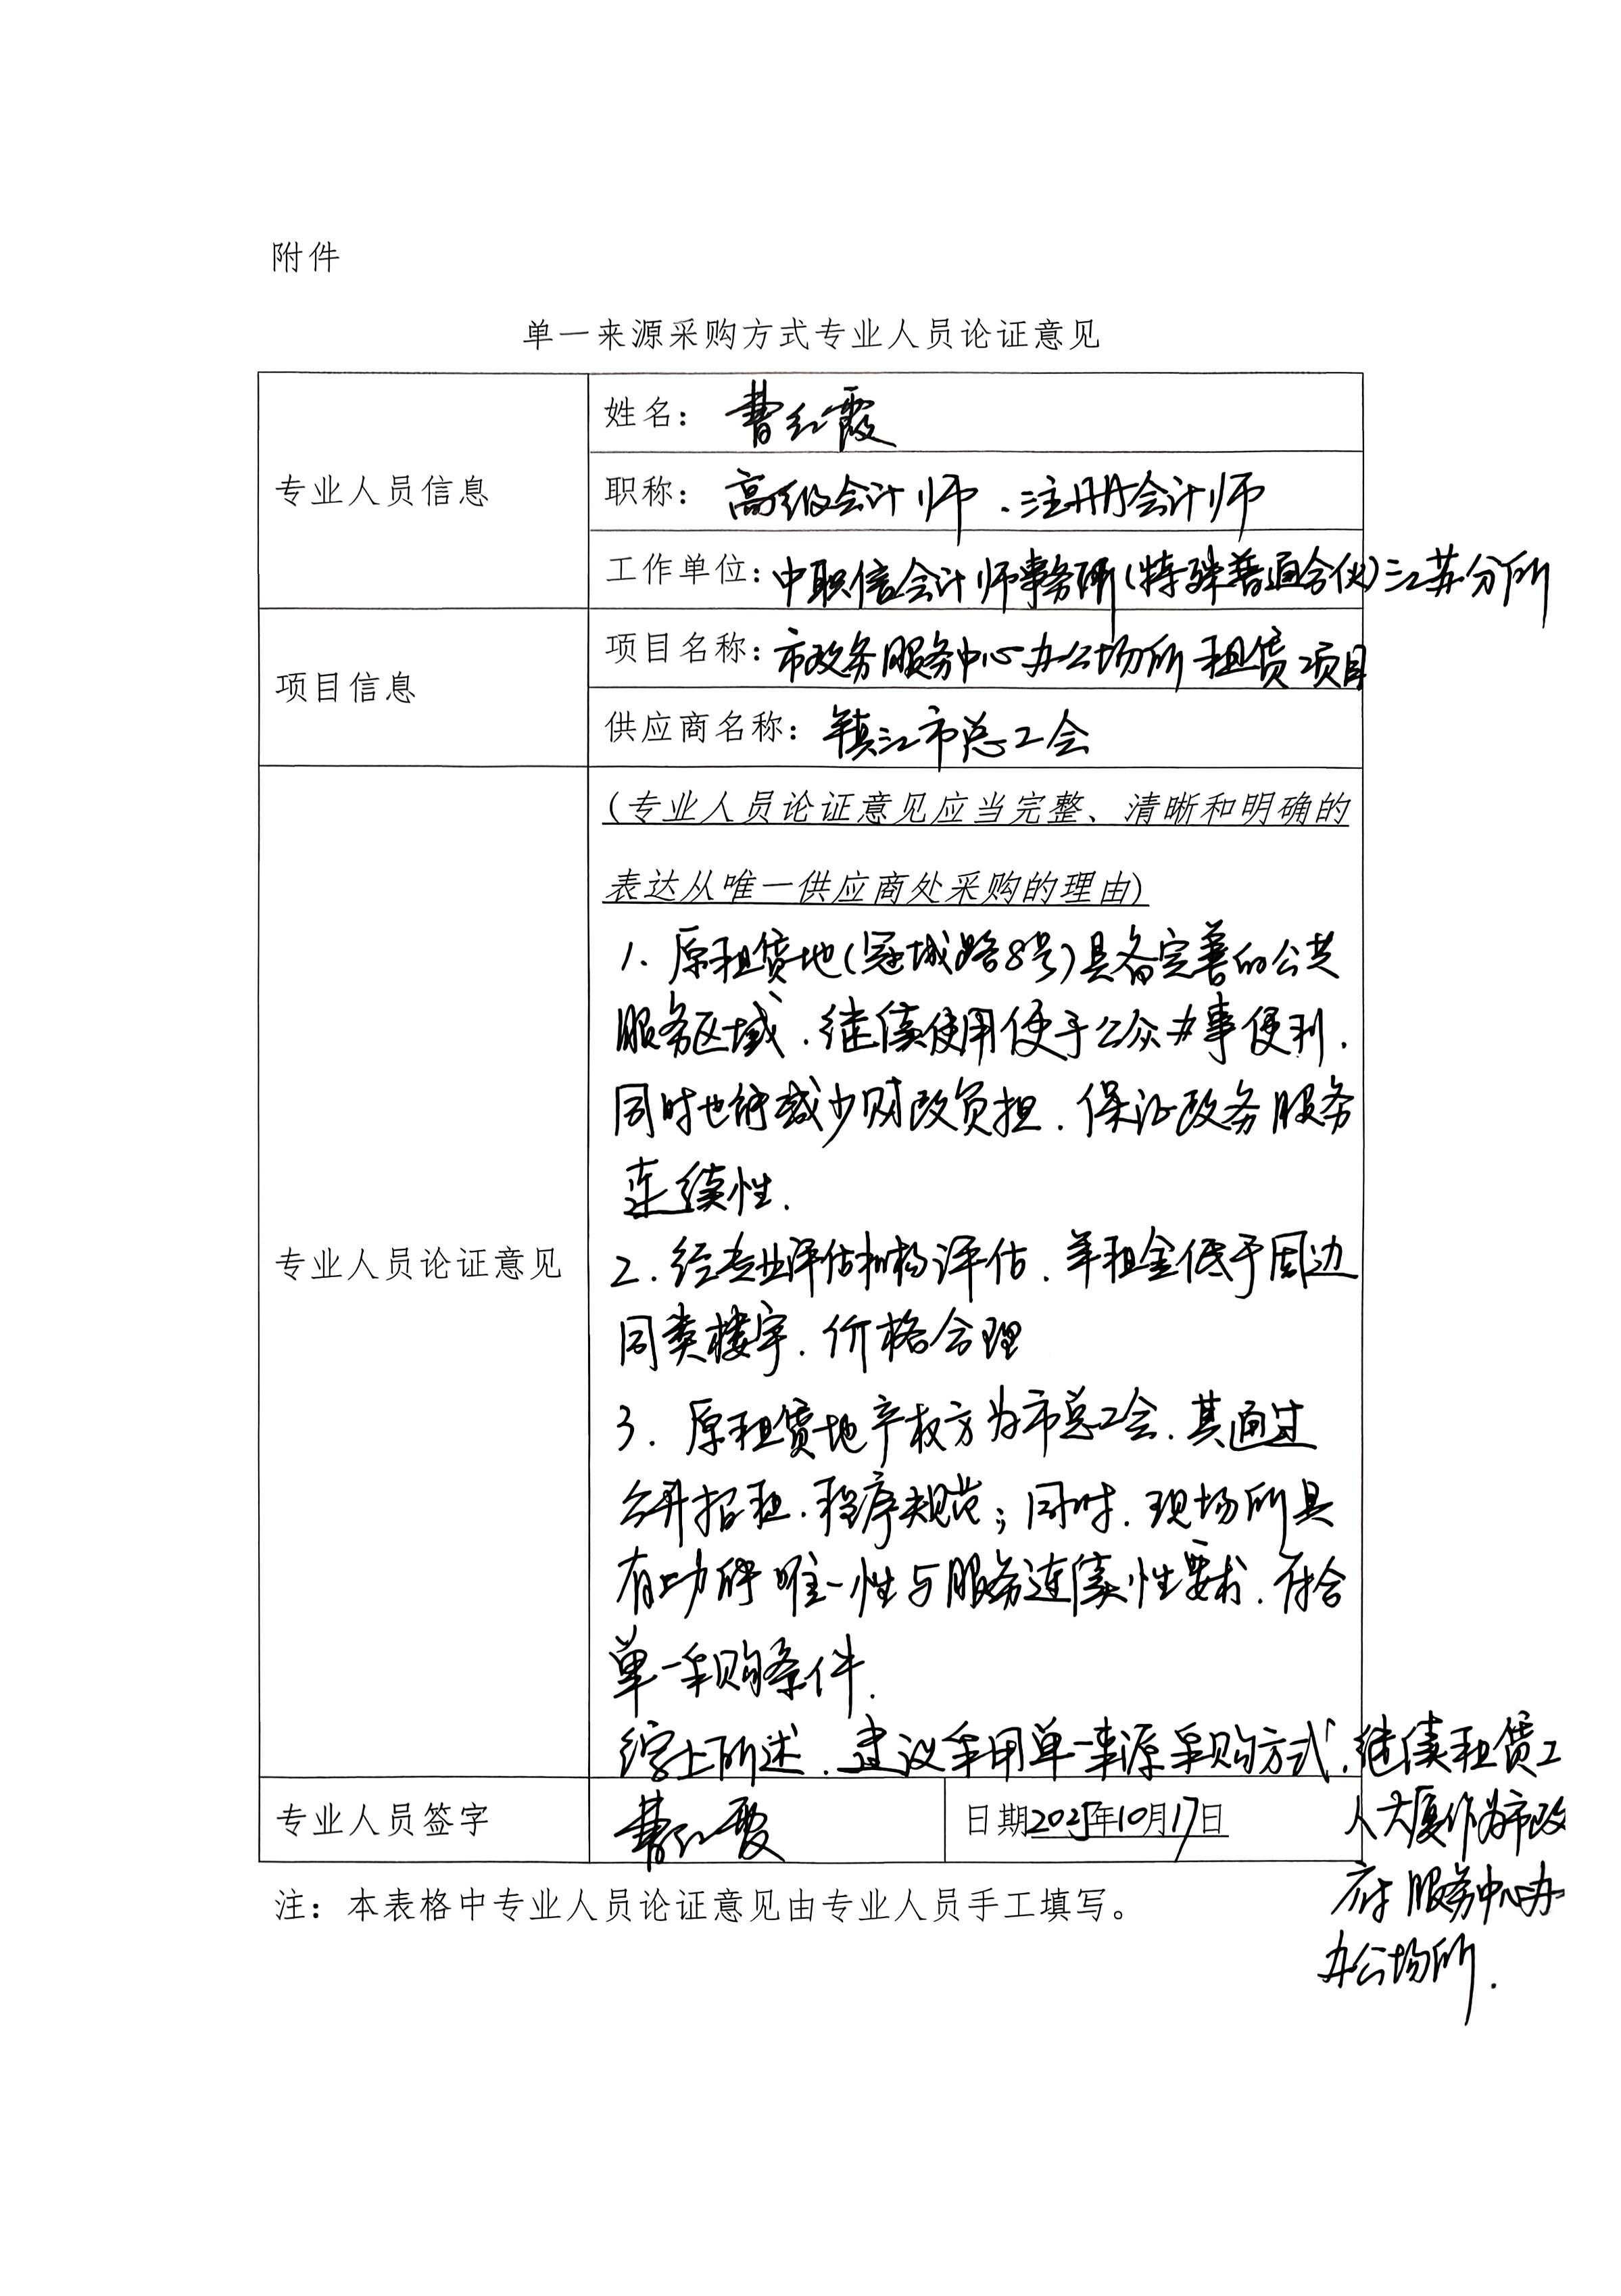 附件
单一来源采购方式专业人员论证意见
专业人员信息
姓名：曹红霞
职称：高级会计师、注册会计师
工作单位：中职信会计师事务所（特殊普通合伙）江苏分所
项目信息
项目名称：市政务服务中心办公场所租赁项目
供应商名称：镇江市总工会
专业人员论证意见
（专业人员论证意见应当完整、清晰和明确的
表达从唯一供应商处采购的理由）
1、原租赁地（冠城路8号）具备完善的公共
服务区域，继续使用便于公众办事便利，
同时也能减少财政负担，保证政务服务
连续性。
2、经专业评估机构评估，年租金低于周边
同类楼宇，价格合理
3、原租赁地产权方为市总工会，其通过
公开招租，程序规范；同时，现场所具
有功能唯一性与服务连续性要求，符合
单一采购条件。
综上所述，建议采用单一来源采购方式，继续租赁工
人大厦作为市政
府服务中心办
办公场所。
专业人员签字
曹红霞
日期2025年10月17日
注：本表格中专业人员论证意见由专业人员手工填写。